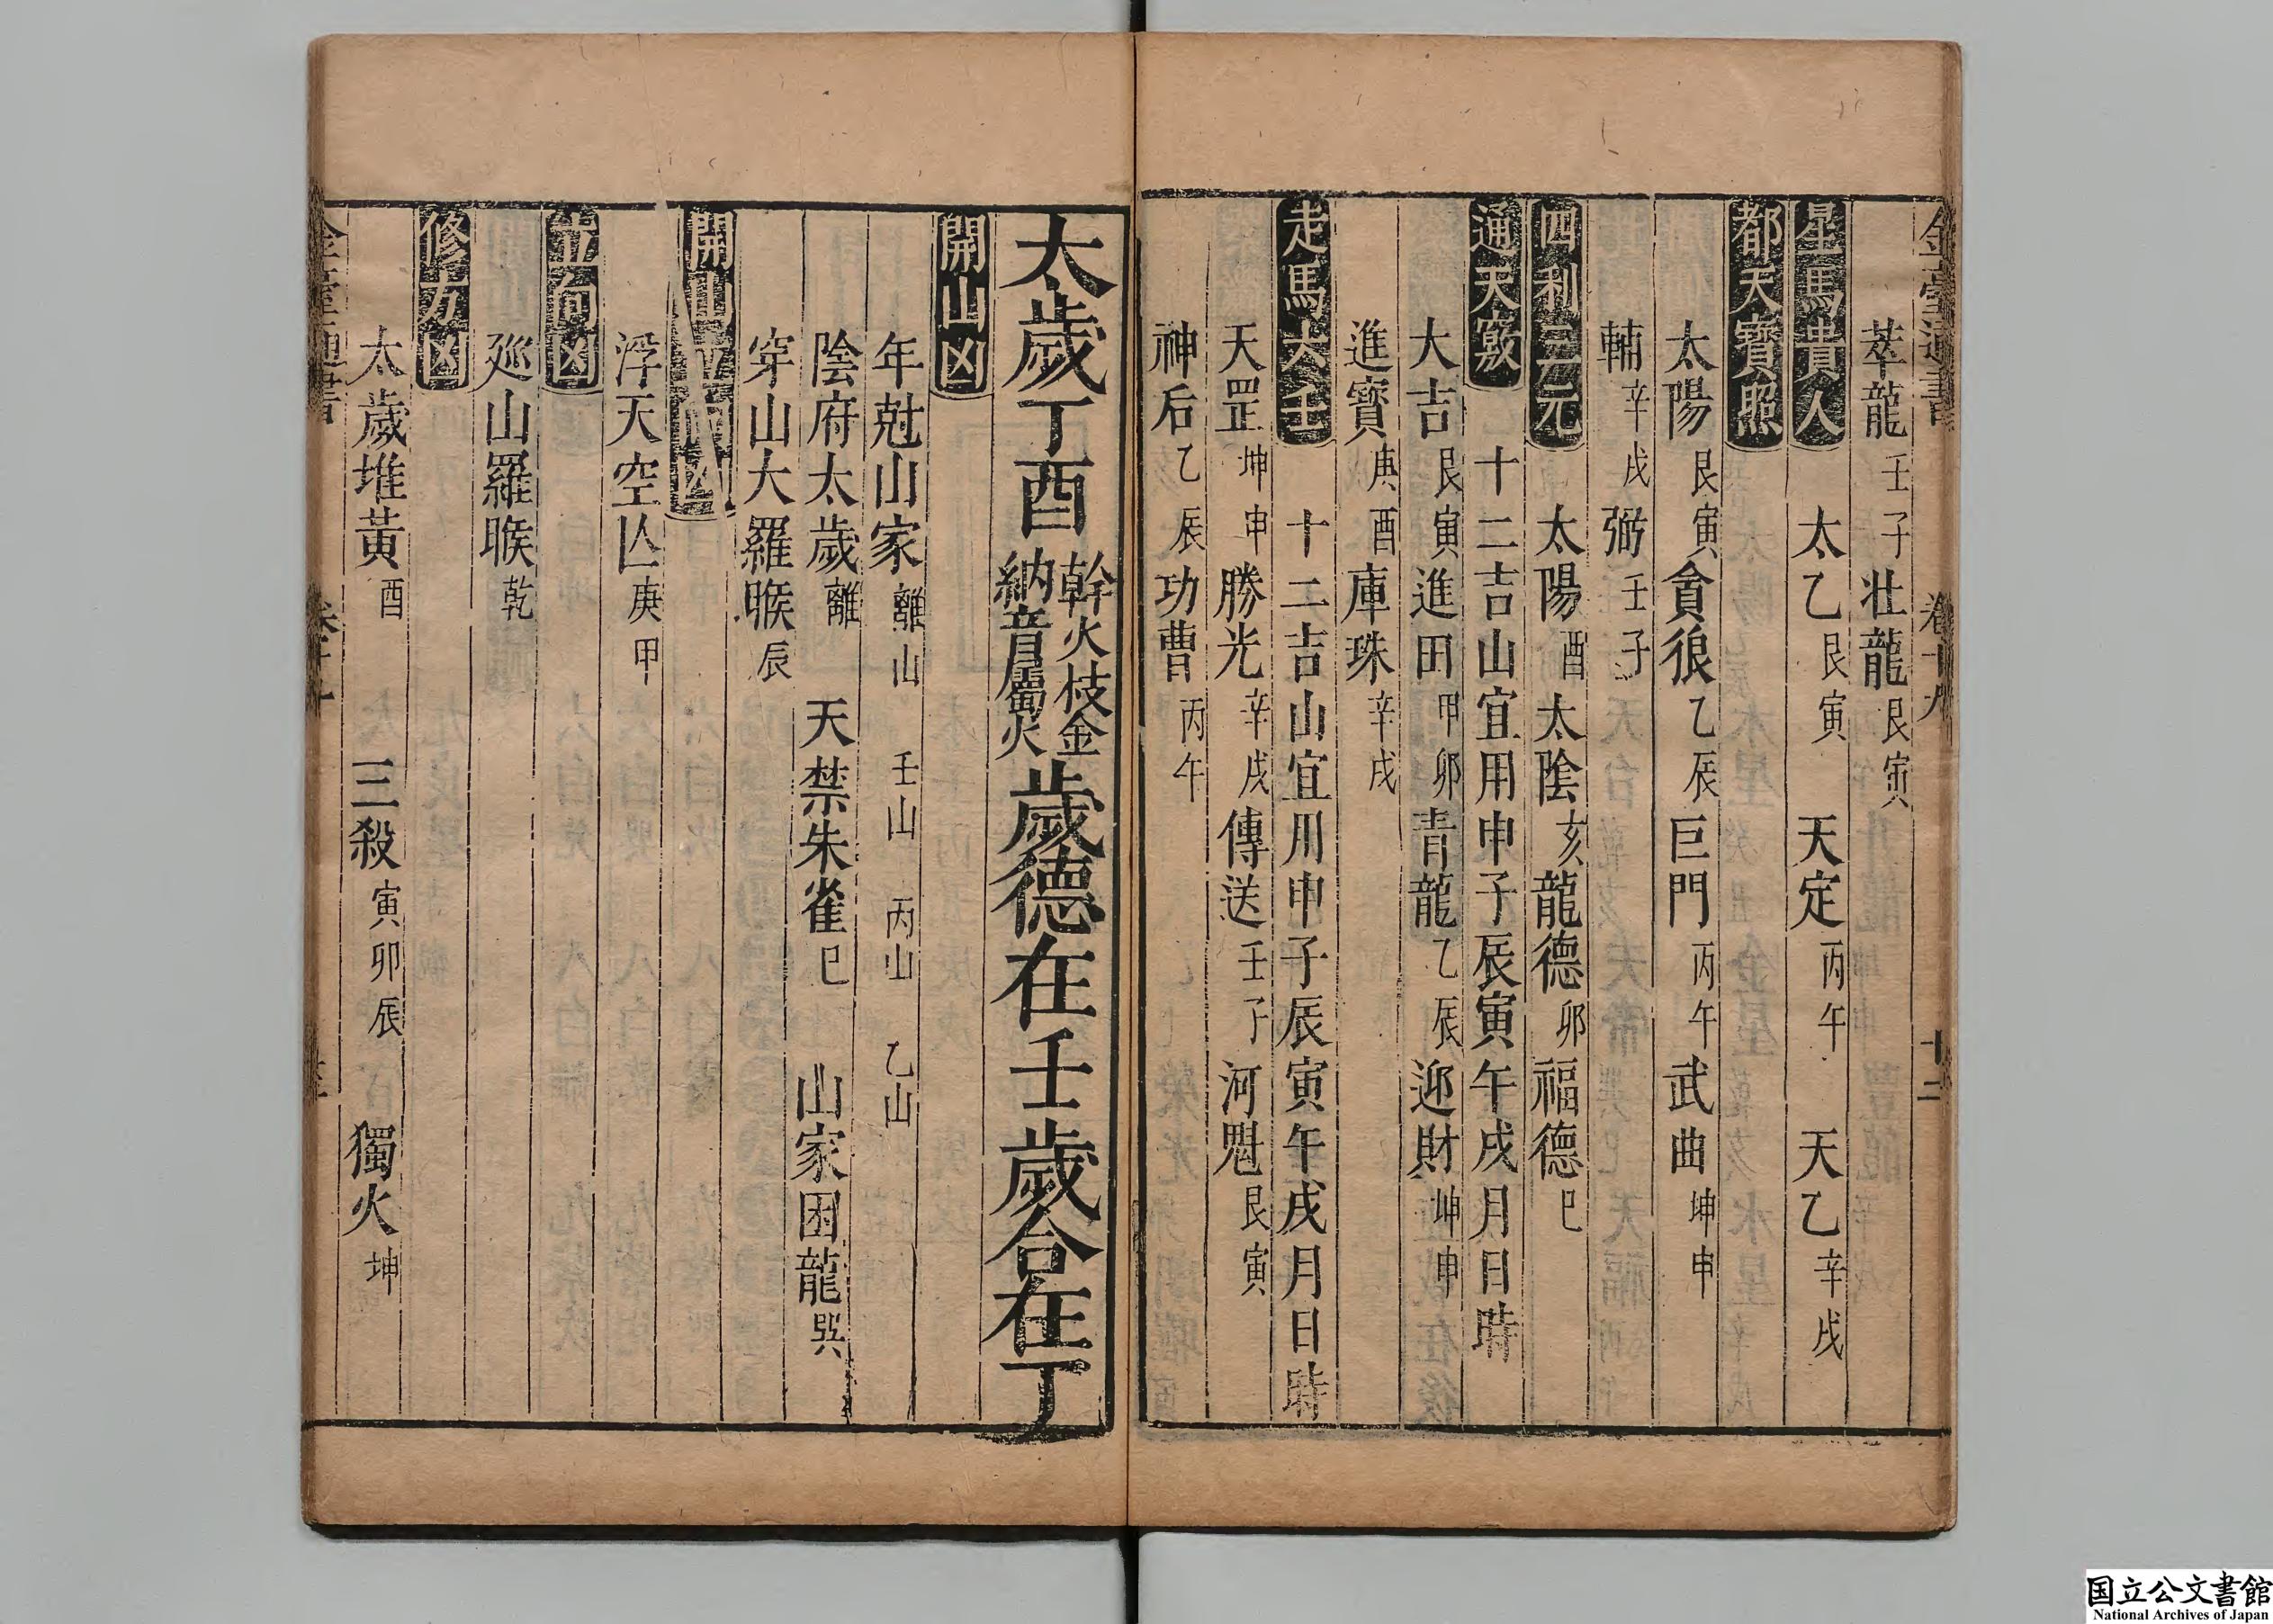 萃龍 壬子 壮龍 艮寅
星馬貴人 太乙 艮寅 天定 丙午 天乙 辛戌
都天寳照
太陽 艮寅 貪狼 乙辰 巨門 丙午 武曲 坤申
輔 辛戌 弼 壬子
四利三元 太陽 酉 太陰 亥 龍德 卯 福德 巳
通天竅 十二吉山宜用申子辰寅午戌月日時
大吉 艮寅 進田 甲卯 青龍 乙辰 迎財 坤申
進寳 庚酉 庫珠 辛戌
走馬六壬 十二吉山宜用申子辰寅午戌月日時
天罡 坤申 勝光 辛戌 傳送 壬子 河魁 艮寅
神后 乙辰 功曹 丙午
太歲丁酉 幹火枝金 納音屬火 歲德在壬歲合在丁
開山凶
年尅山家 離山 壬山 丙山 乙山
陰府太歲 離 天禁朱雀 巳 山家困龍 巽
穿山大羅睺 辰
開山立向凶
浮天空亾 庚甲
立向凶
廵山羅睺 乾
修方凶
太歲堆黃 酉 三殺 寅卯辰 獨火 坤
金堂通書 卷十九 廿二
国立公文書館
National Archives of Japan